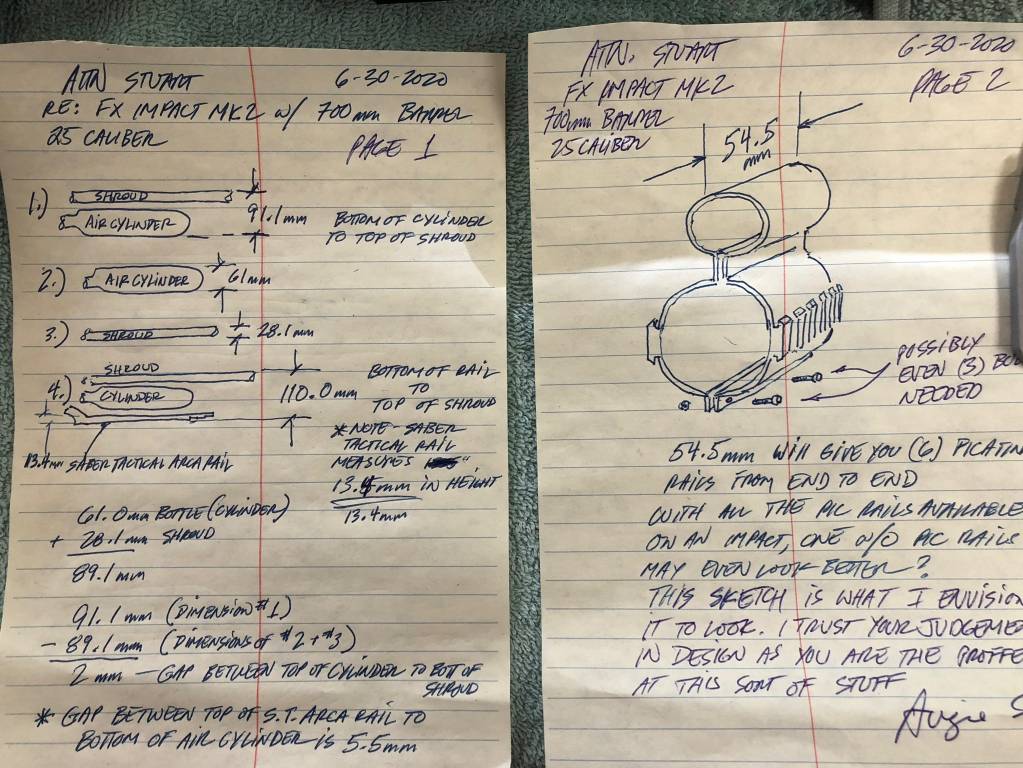 ATTN STUART 6-30-2020
RE: FX IMPACT MK2 w/ 700mm BARREL
25 CALIBER PAGE 1
1.) SHROUD
AIR CYLINDER
91.1mm
BOTTOM OF CYLINDER
TO TOP OF SHROUD
2.) AIR CYLINDER 61mm
3.) SHROUD 28.1mm
4.) SHROUD
CYLINDER
110.0mm
BOTTOM OF RAIL
TO
TOP OF SHROUD
13.4mm SABER TACTICAL ARCA RAIL
* NOTE - SABER
TACTICAL RAIL
MEASURES
13.4mm IN HEIGHT
13.4mm
61.0mm BOTTLE (CYLINDER)
+ 28.1mm SHROUD
89.1mm
91.1mm (DIMENSION #1)
- 89.1mm (DIMENSIONS OF #2 + #3)
2mm - GAP BETWEEN TOP OF CYLINDER TO BOTT OF
SHROUD
* GAP BETWEEN TOP OF S.T. ARCA RAIL TO
BOTTOM OF AIR CYLINDER IS 5.5mm
ATTN. STUART 6-30-2020
FX IMPACT MK2 PAGE 2
700mm BARREL
25 CALIBER
54.5
mm
POSSIBLY
EVEN (3)
NEEDED
54.5mm WILL GIVE YOU (6) PICATIN
RAILS FROM END TO END
WITH ALL THE PIC RAILS AVAILABLE
ON AN IMPACT, ONE W/O PIC RAILS
MAY EVEN LOOK BETTER?
THIS SKETCH IS WHAT I ENVISION
IT TO LOOK. I TRUST YOUR JUDGEME
IN DESIGN AS YOU ARE THE PROFFE
AT THIS SORT OF STUFF
Augie S